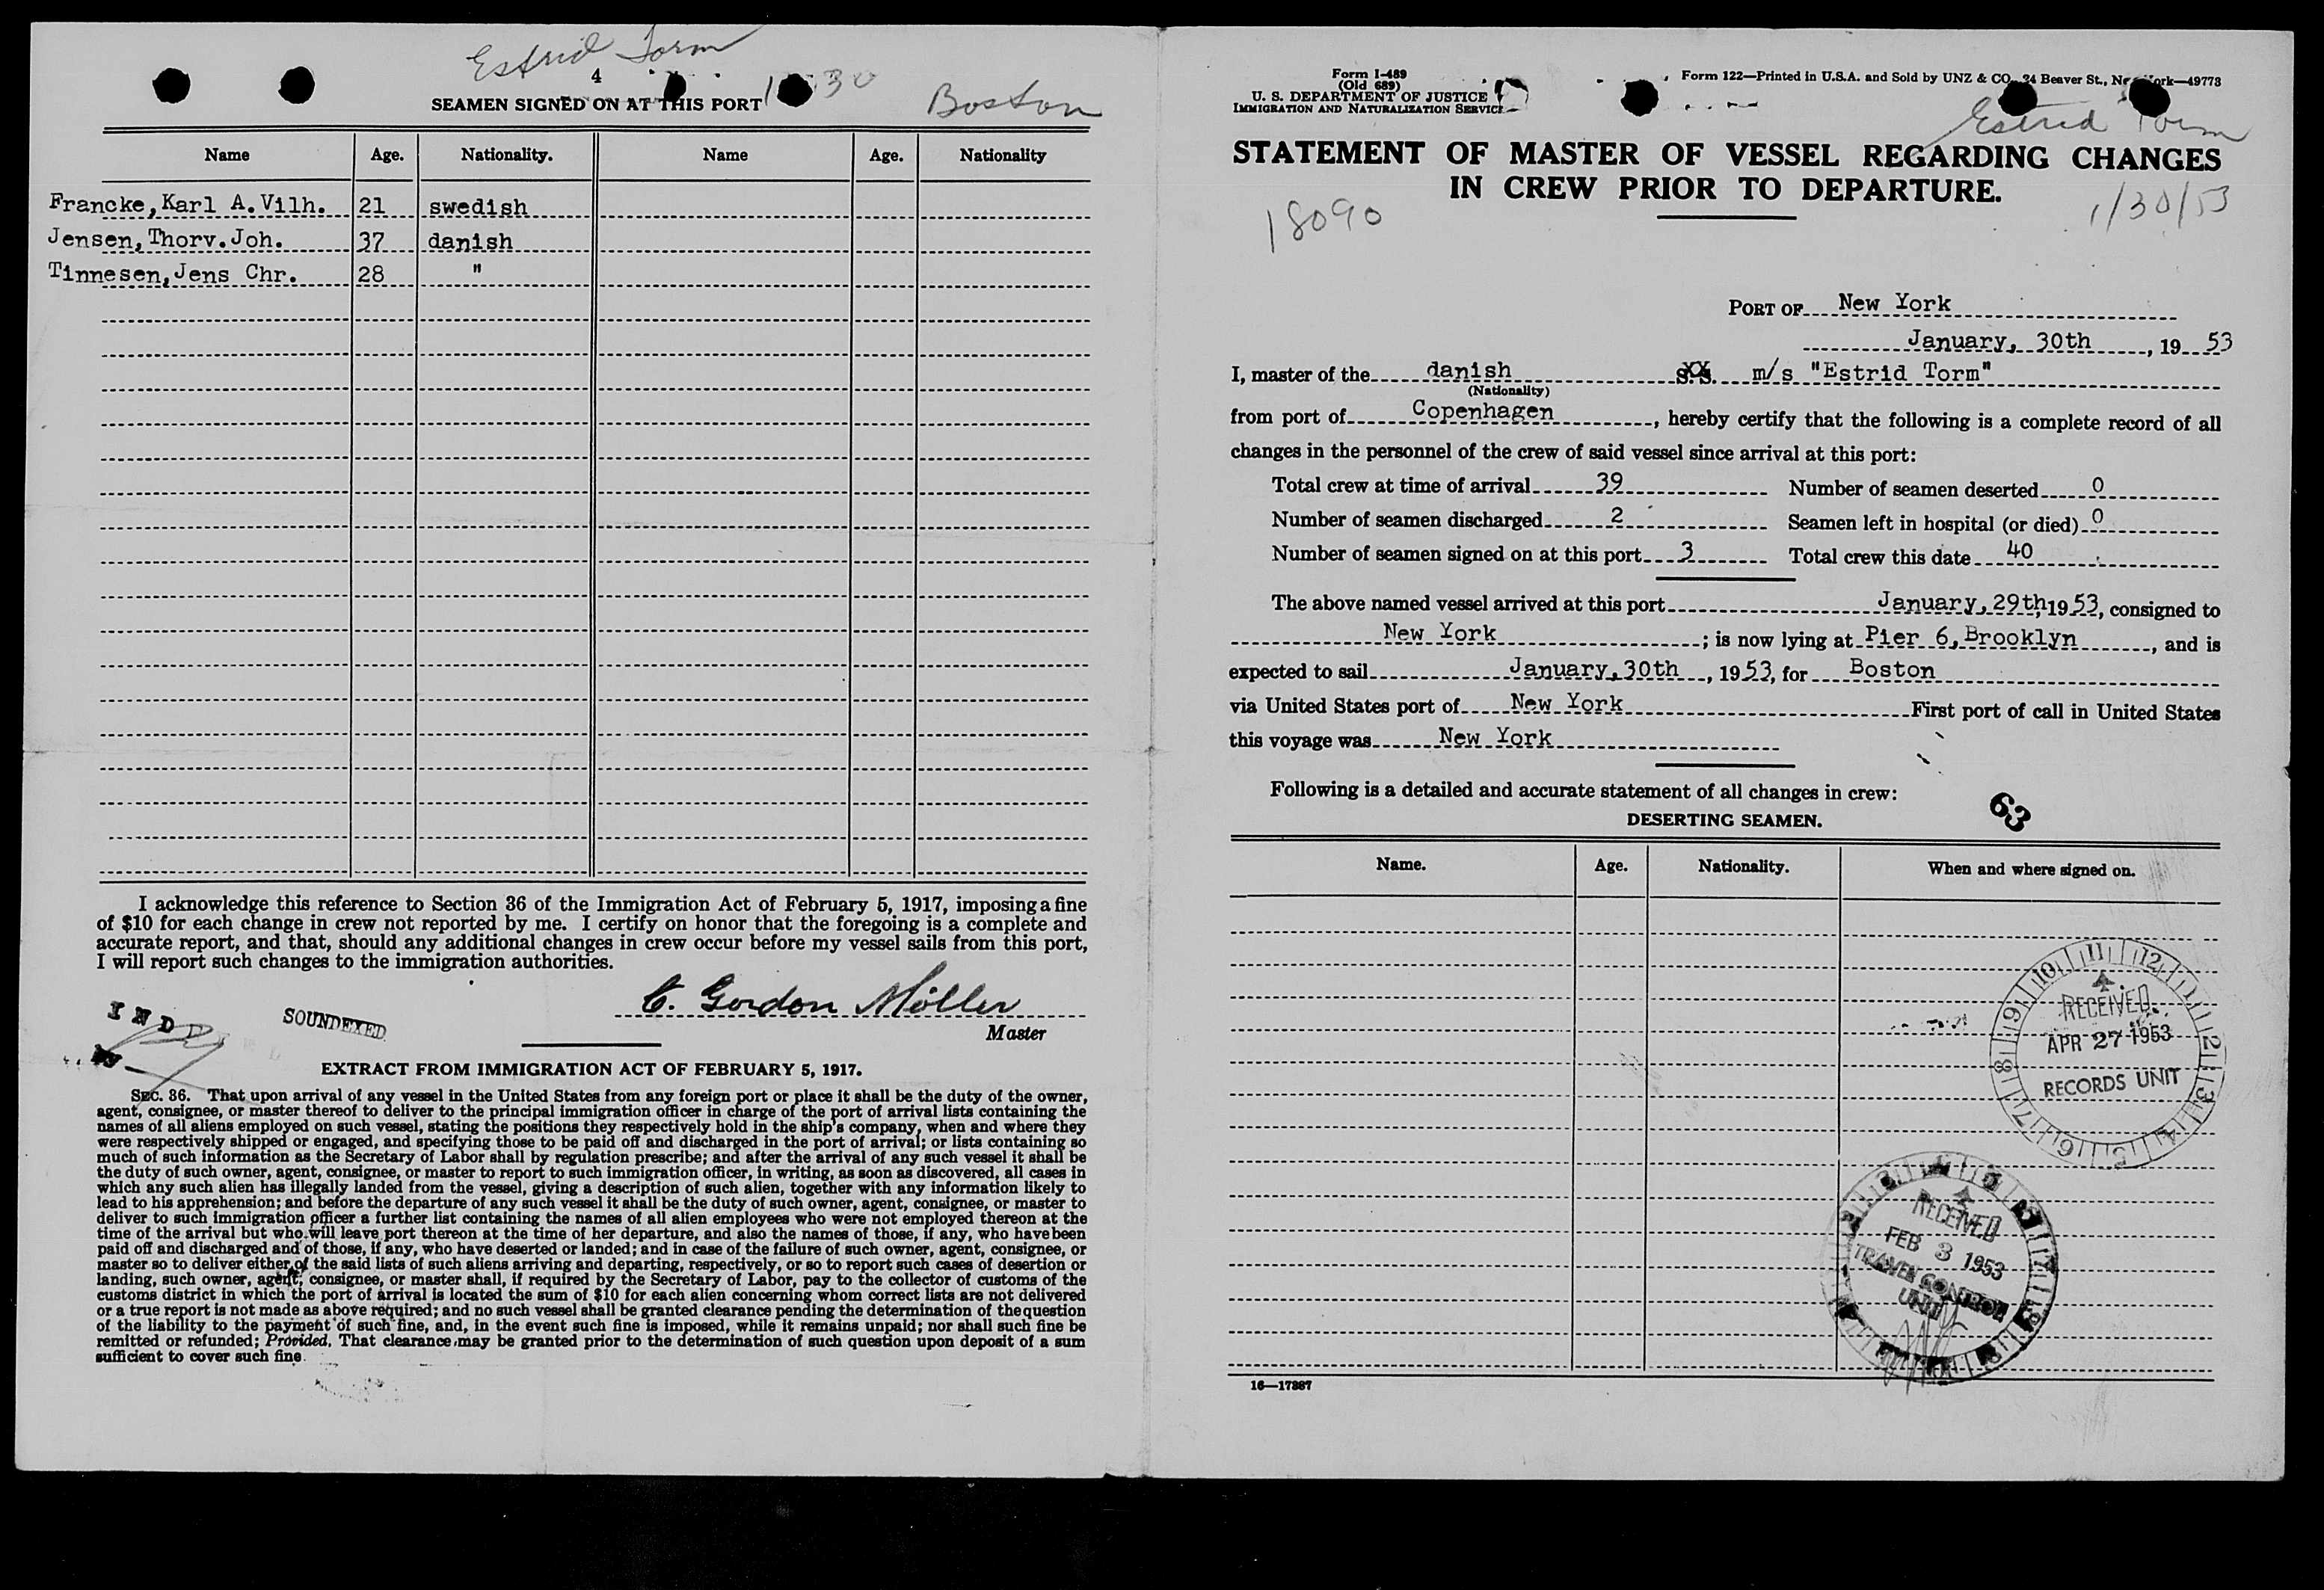 Estrid Torm
4
SEAMEN SIGNED ON AT THIS PORT
30
Boston
Name Age. Nationality. Name Age. Nationality
Francke, Karl A. Vilh. 21 swedish
Jensen, Thorv. Joh. 37 danish
Tinnesen, Jens Chr. 28 "
I acknowledge this reference to Section 36 of the Immigration Act of February 5, 1917, imposing a fine
of $10 for each change in crew not reported by me. I certify on honor that the foregoing is a complete and
accurate report, and that, should any additional changes in crew occur before my vessel sails from this port,
I will report such changes to the immigration authorities.
C. Gordon Möller
Master
SOUNDEXED
EXTRACT FROM IMMIGRATION ACT OF FEBRUARY 5, 1917.
SEC. 36. That upon arrival of any vessel in the United States from any foreign port or place it shall be the duty of the owner,
agent, consignee, or master thereof to deliver to the principal immigration officer in charge of the port of arrival lists containing the
names of all aliens employed on such vessel, stating the positions they respectively hold in the ship's company, when and where they
were respectively shipped or engaged, and specifying those to be paid off and discharged in the port of arrival; or lists containing so
much of such information as the Secretary of Labor shall by regulation prescribe; and after the arrival of any such vessel it shall be
the duty of such owner, agent, consignee, or master to report to such immigration officer, in writing, as soon as discovered, all cases in
which any such alien has illegally landed from the vessel, giving a description of such alien, together with any information likely to
lead to his apprehension; and before the departure of any such vessel it shall be the duty of such owner, agent, consignee, or master to
deliver to such immigration officer a further list containing the names of all alien employees who were not employed thereon at the
time of the arrival but who will leave port thereon at the time of her departure, and also the names of those, if any, who have been
paid off and discharged and of those, if any, who have deserted or landed; and in case of the failure of such owner, agent, consignee, or
master so to deliver either of the said lists of such aliens arriving and departing, respectively, or so to report such cases of desertion or
landing, such owner, agent, consignee, or master shall, if required by the Secretary of Labor, pay to the collector of customs of the
customs district in which the port of arrival is located the sum of $10 for each alien concerning whom correct lists are not delivered
or a true report is not made as above required; and no such vessel shall be granted clearance pending the determination of the question
of the liability to the payment of such fine, and, in the event such fine is imposed, while it remains unpaid; nor shall such fine be
remitted or refunded; Provided, That clearance may be granted prior to the determination of such question upon deposit of a sum
sufficient to cover such fine.
Form I-489
(Old 689)
U. S. DEPARTMENT OF JUSTICE
IMMIGRATION AND NATURALIZATION SERVICE
Form 122—Printed in U.S.A. and Sold by UNZ & CO., 24 Beaver St., New York—49773
Estrid Torm
STATEMENT OF MASTER OF VESSEL REGARDING CHANGES
IN CREW PRIOR TO DEPARTURE.
18090
1/30/53
PORT OF New York
January, 30th, 1953
I, master of the danish S.S. m/s "Estrid Torm"
(Nationality)
from port of Copenhagen, hereby certify that the following is a complete record of all
changes in the personnel of the crew of said vessel since arrival at this port:
Total crew at time of arrival 39 Number of seamen deserted 0
Number of seamen discharged 2 Seamen left in hospital (or died) 0
Number of seamen signed on at this port 3 Total crew this date 40
The above named vessel arrived at this port January, 29th, 1953, consigned to
New York; is now lying at Pier 6, Brooklyn, and is
expected to sail January, 30th, 1953, for Boston
via United States port of New York First port of call in United States
this voyage was New York
Following is a detailed and accurate statement of all changes in crew:
63
DESERTING SEAMEN.
Name. Age. Nationality. When and where signed on.
RECEIVED
APR 27 1953
RECORDS UNIT
RECEIVED
FEB 3 1953
TRAVEL CONTROL
UNIT
16—17387